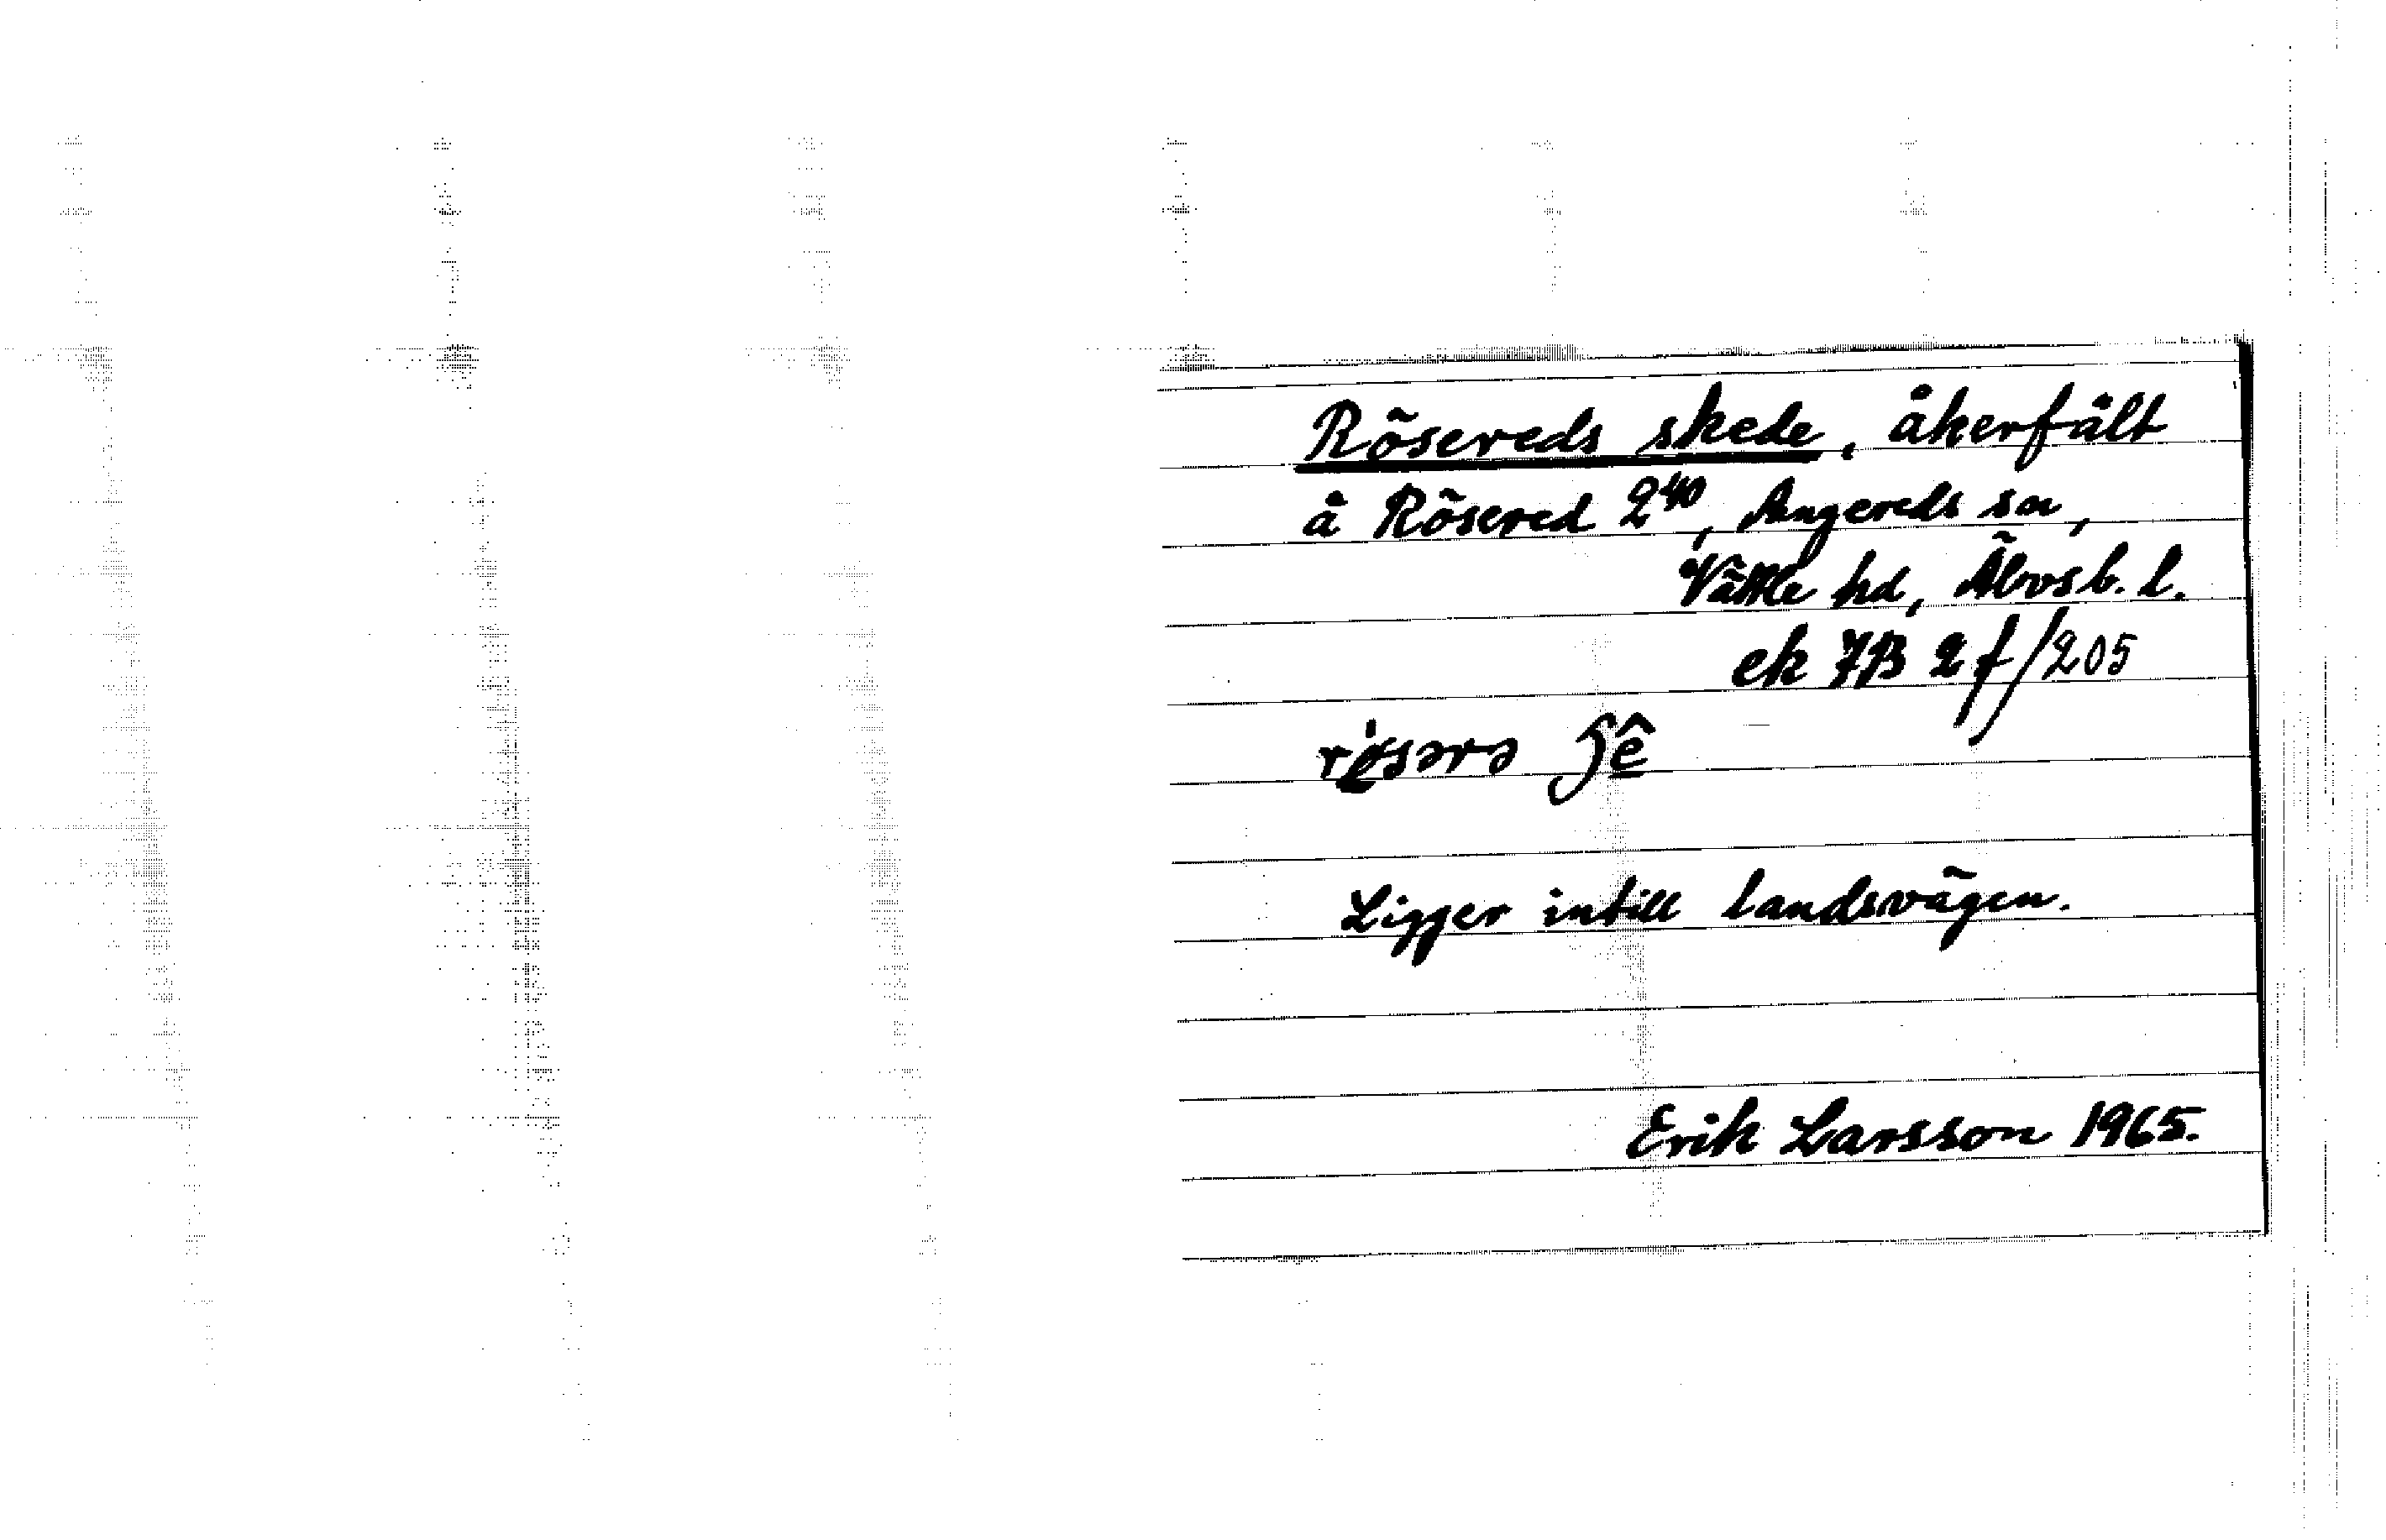 Rösereds skede, åkerfält
å Rösered 2⁴⁰, Angereds sn,
Vättle hd, Älvsb. l.
ek 7B 2f/205
Ligger intill landsvägen.
Erik Larsson 1965.